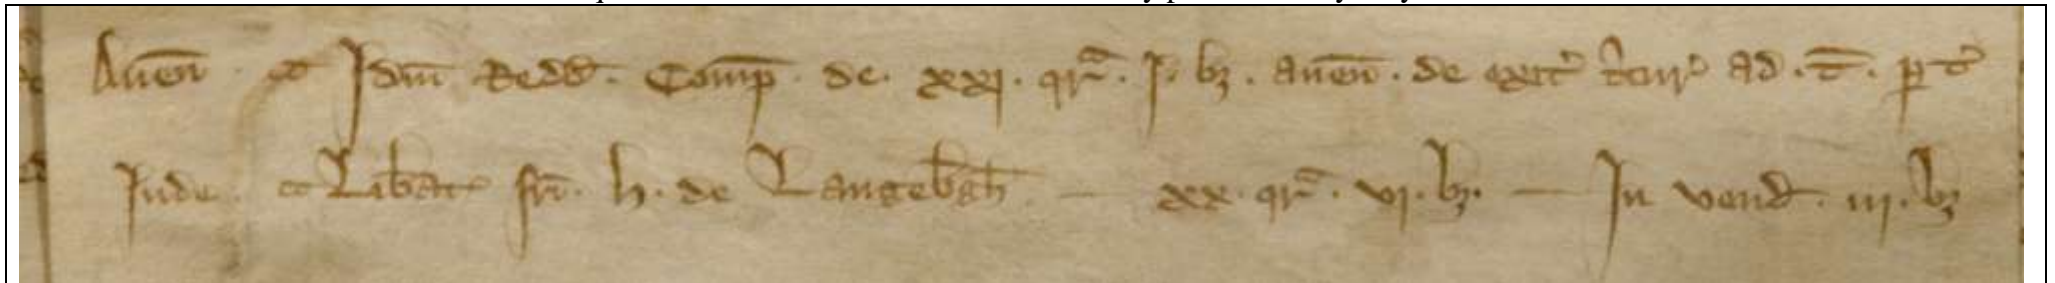 Auen̄ . ꝯ Idm̄ Redd̄ . Comp̄ . de . xxj . qr̄ꝰ . j . bȝ . auen̄ . de exit᾽ ad . t̄ . p t᾽
Inde . ꝯ Liƀat᾽ fr̄i . h . de Langeƀgħ — xx . qr̄ꝰ . vj . bȝ . — In vend̄ . iij . bȝ